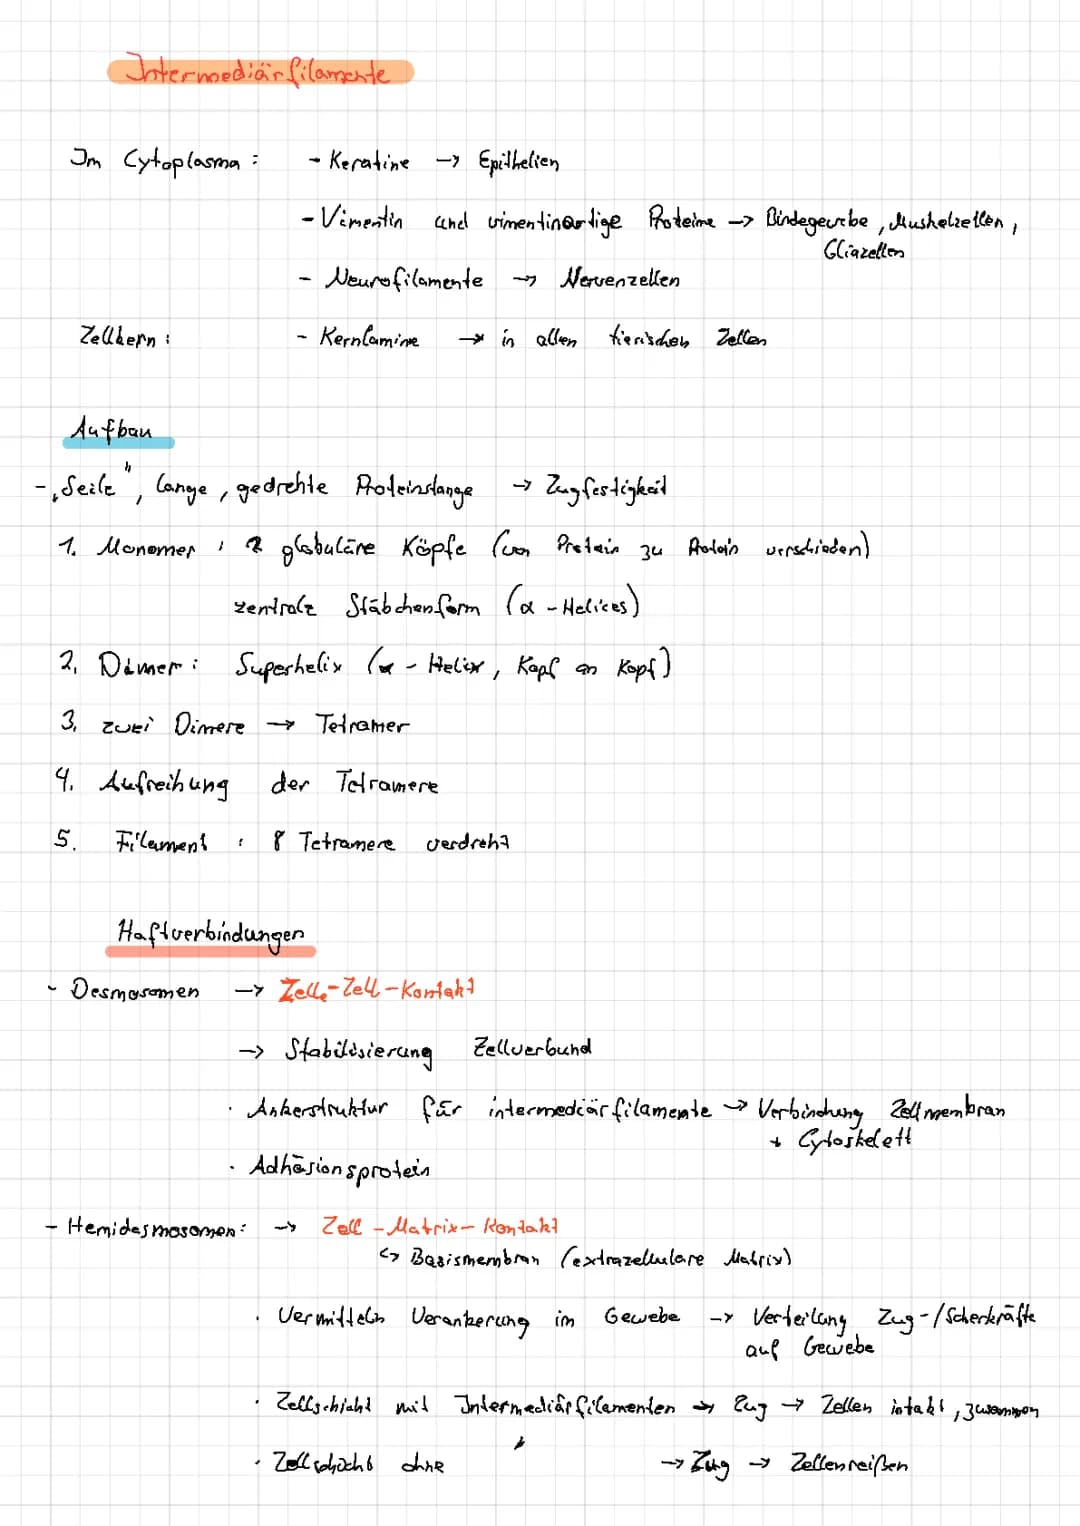 Intermediärfilamente
Im Cytoplasma : - Keratine -> Epithelien
- Vimentin und vimentinartige Proteine -> Bindegewebe, Muskelzellen,
Gliazellen
- Neurofilamente -> Nervenzellen
Zellkern : - Kernlamine -> in allen tierischen Zellen
Aufbau
- „Seile", lange, gedrehte Proteinstange -> Zugfestigkeit
1. Monomer : 2 globuläre Köpfe (von Protein zu Protein verschieden)
zentrale Stäbchenform (α - Helices)
2. Dimer : Superhelix (α - Helix, Kopf an Kopf)
3. zwei Dimere -> Tetramer
4. Aufreihung der Tetramere
5. Filament : 8 Tetramere verdreht
Haftverbindungen
- Desmosomen -> Zelle-Zell-Kontakt
-> Stabilisierung Zellverbund
· Ankerstruktur für intermediärfilamente -> Verbindung Zellmembran
+ Cytoskelett
· Adhäsionsprotein
- Hemidesmosomen: -> Zell - Matrix - Kontakt
↳ Basismembran (extrazellulare Matrix)
· Vermitteln Verankerung im Gewebe -> Verteilung Zug-/Scherkräfte
auf Gewebe
· Zellschicht mit Intermediärfilamenten -> Zug -> Zellen intakt, zusammen
· Zellschicht ohne " -> Zug -> Zellen reißen